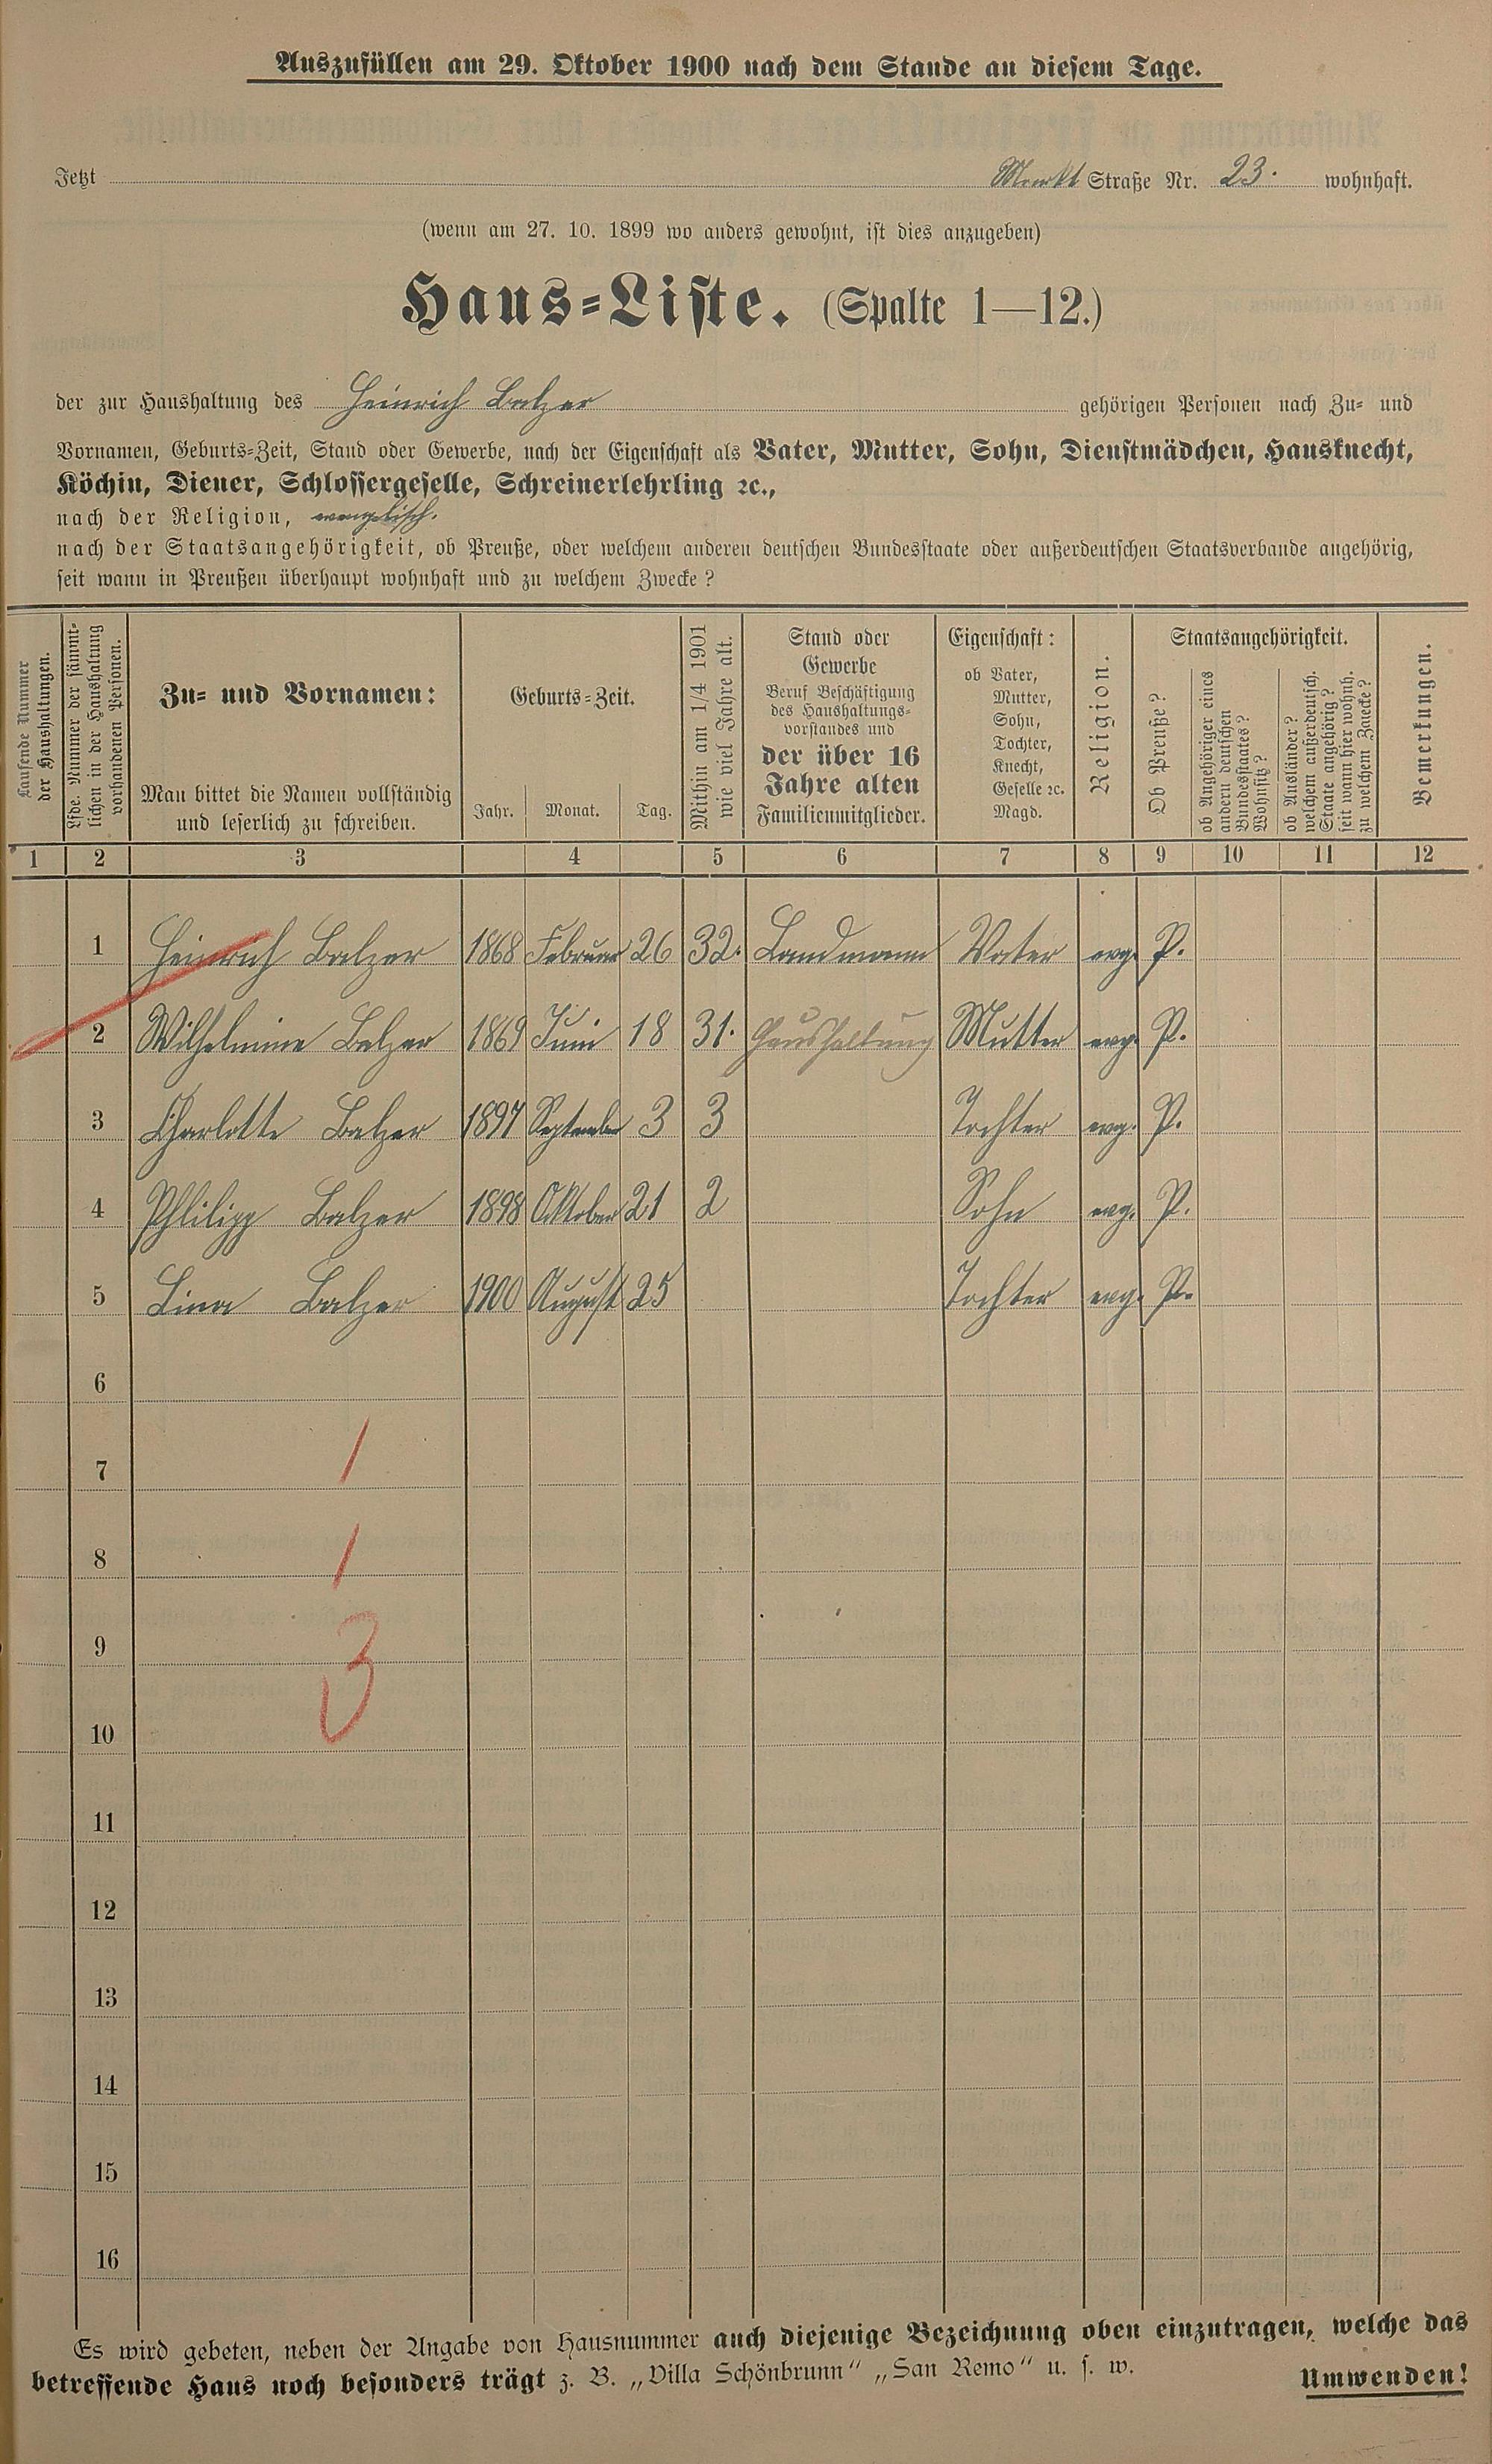 Auszufüllen am 29. Oktober 1900 nach dem Stande an diesem Tage.
Jetzt Markt Straße Nr. 23. wohnhaft.
(wenn am 27. 10. 1899 wo anders gewohnt, ist dies anzugeben)
Haus=Liste. (Spalte 1—12.)
der zur Haushaltung des Heinrich Balzer gehörigen Personen nach Zu= und
Vornamen, Geburts=Zeit, Stand oder Gewerbe, nach der Eigenschaft als Vater, Mutter, Sohn, Dienstmädchen, Hausknecht,
Köchin, Diener, Schlossergeselle, Schreinerlehrling ꝛc.,
nach der Religion, evangelisch.
nach der Staatsangehörigkeit, ob Preuße, oder welchem anderen deutschen Bundesstaate oder außerdeutschen Staatsverbande angehörig,
seit wann in Preußen überhaupt wohnhaft und zu welchem Zwecke?
Laufende Nummer
der Haushaltungen.
Lfde. Nummer der sämmt-
lichen in der Haushaltung
vorhandenen Personen.
Zu= und Vornamen:
Man bittet die Namen vollständig
und leserlich zu schreiben.
Geburts=Zeit.
Jahr. Monat. Tag.
Mithin am 1/4 1901
wie viel Jahre alt.
Stand oder
Gewerbe
Beruf Beschäftigung
des Haushaltungs=
vorstandes und
der über 16
Jahre alten
Familienmitglieder.
Eigenschaft:
ob Vater,
Mutter,
Sohn,
Tochter,
Knecht,
Geselle ꝛc.
Magd.
Religion.
Staatsangehörigkeit.
Ob Preuße?
ob Angehöriger eines
andern deutschen
Bundesstaates?
Wohnsitz?
ob Ausländer?
welchem außerdeutsch.
Staate angehörig?
seit wann hier wohnh.
zu welchem Zwecke?
Bemerkungen.
1 2 3 4 5 6 7 8 9 10 11 12
1 Heinrich Balzer 1868 Februar 26 32. Landmann Vater evg. P.
2 Wilhelmine Balzer 1869 Juni 18 31. Haushaltung Mutter evg. P.
3 Charlotte Balzer 1897 September 3 3 Tochter evg. P.
4 Phlilipp Balzer 1898 Oktober 21 2 Sohn evg. P.
5 Lina Balzer 1900 August 25 Tochter evg. P.
6
7 1
8 1
9 3
10
11
12
13
14
15
16
Es wird gebeten, neben der Angabe von Hausnummer auch diejenige Bezeichnung oben einzutragen, welche das
betreffende Haus noch besonders trägt z. B. „Villa Schönbrunn“ „San Remo“ u. s. w. Umwenden!